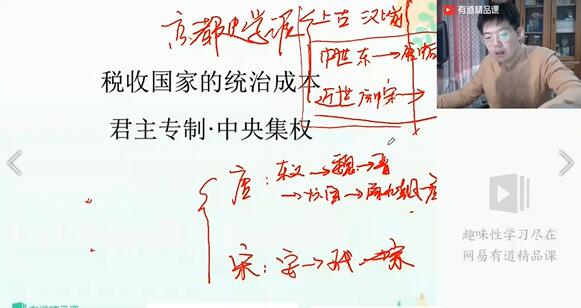 有道精品课
京都史学派 上古 汉
中世 东→唐
税收国家的统治成本
近世 宋→
君主专制·中央集权
唐：东汉→魏→晋
→十六国→南北朝 唐
宋：安→ →宋
趣味性学习尽在
网易有道精品课
有道精品课